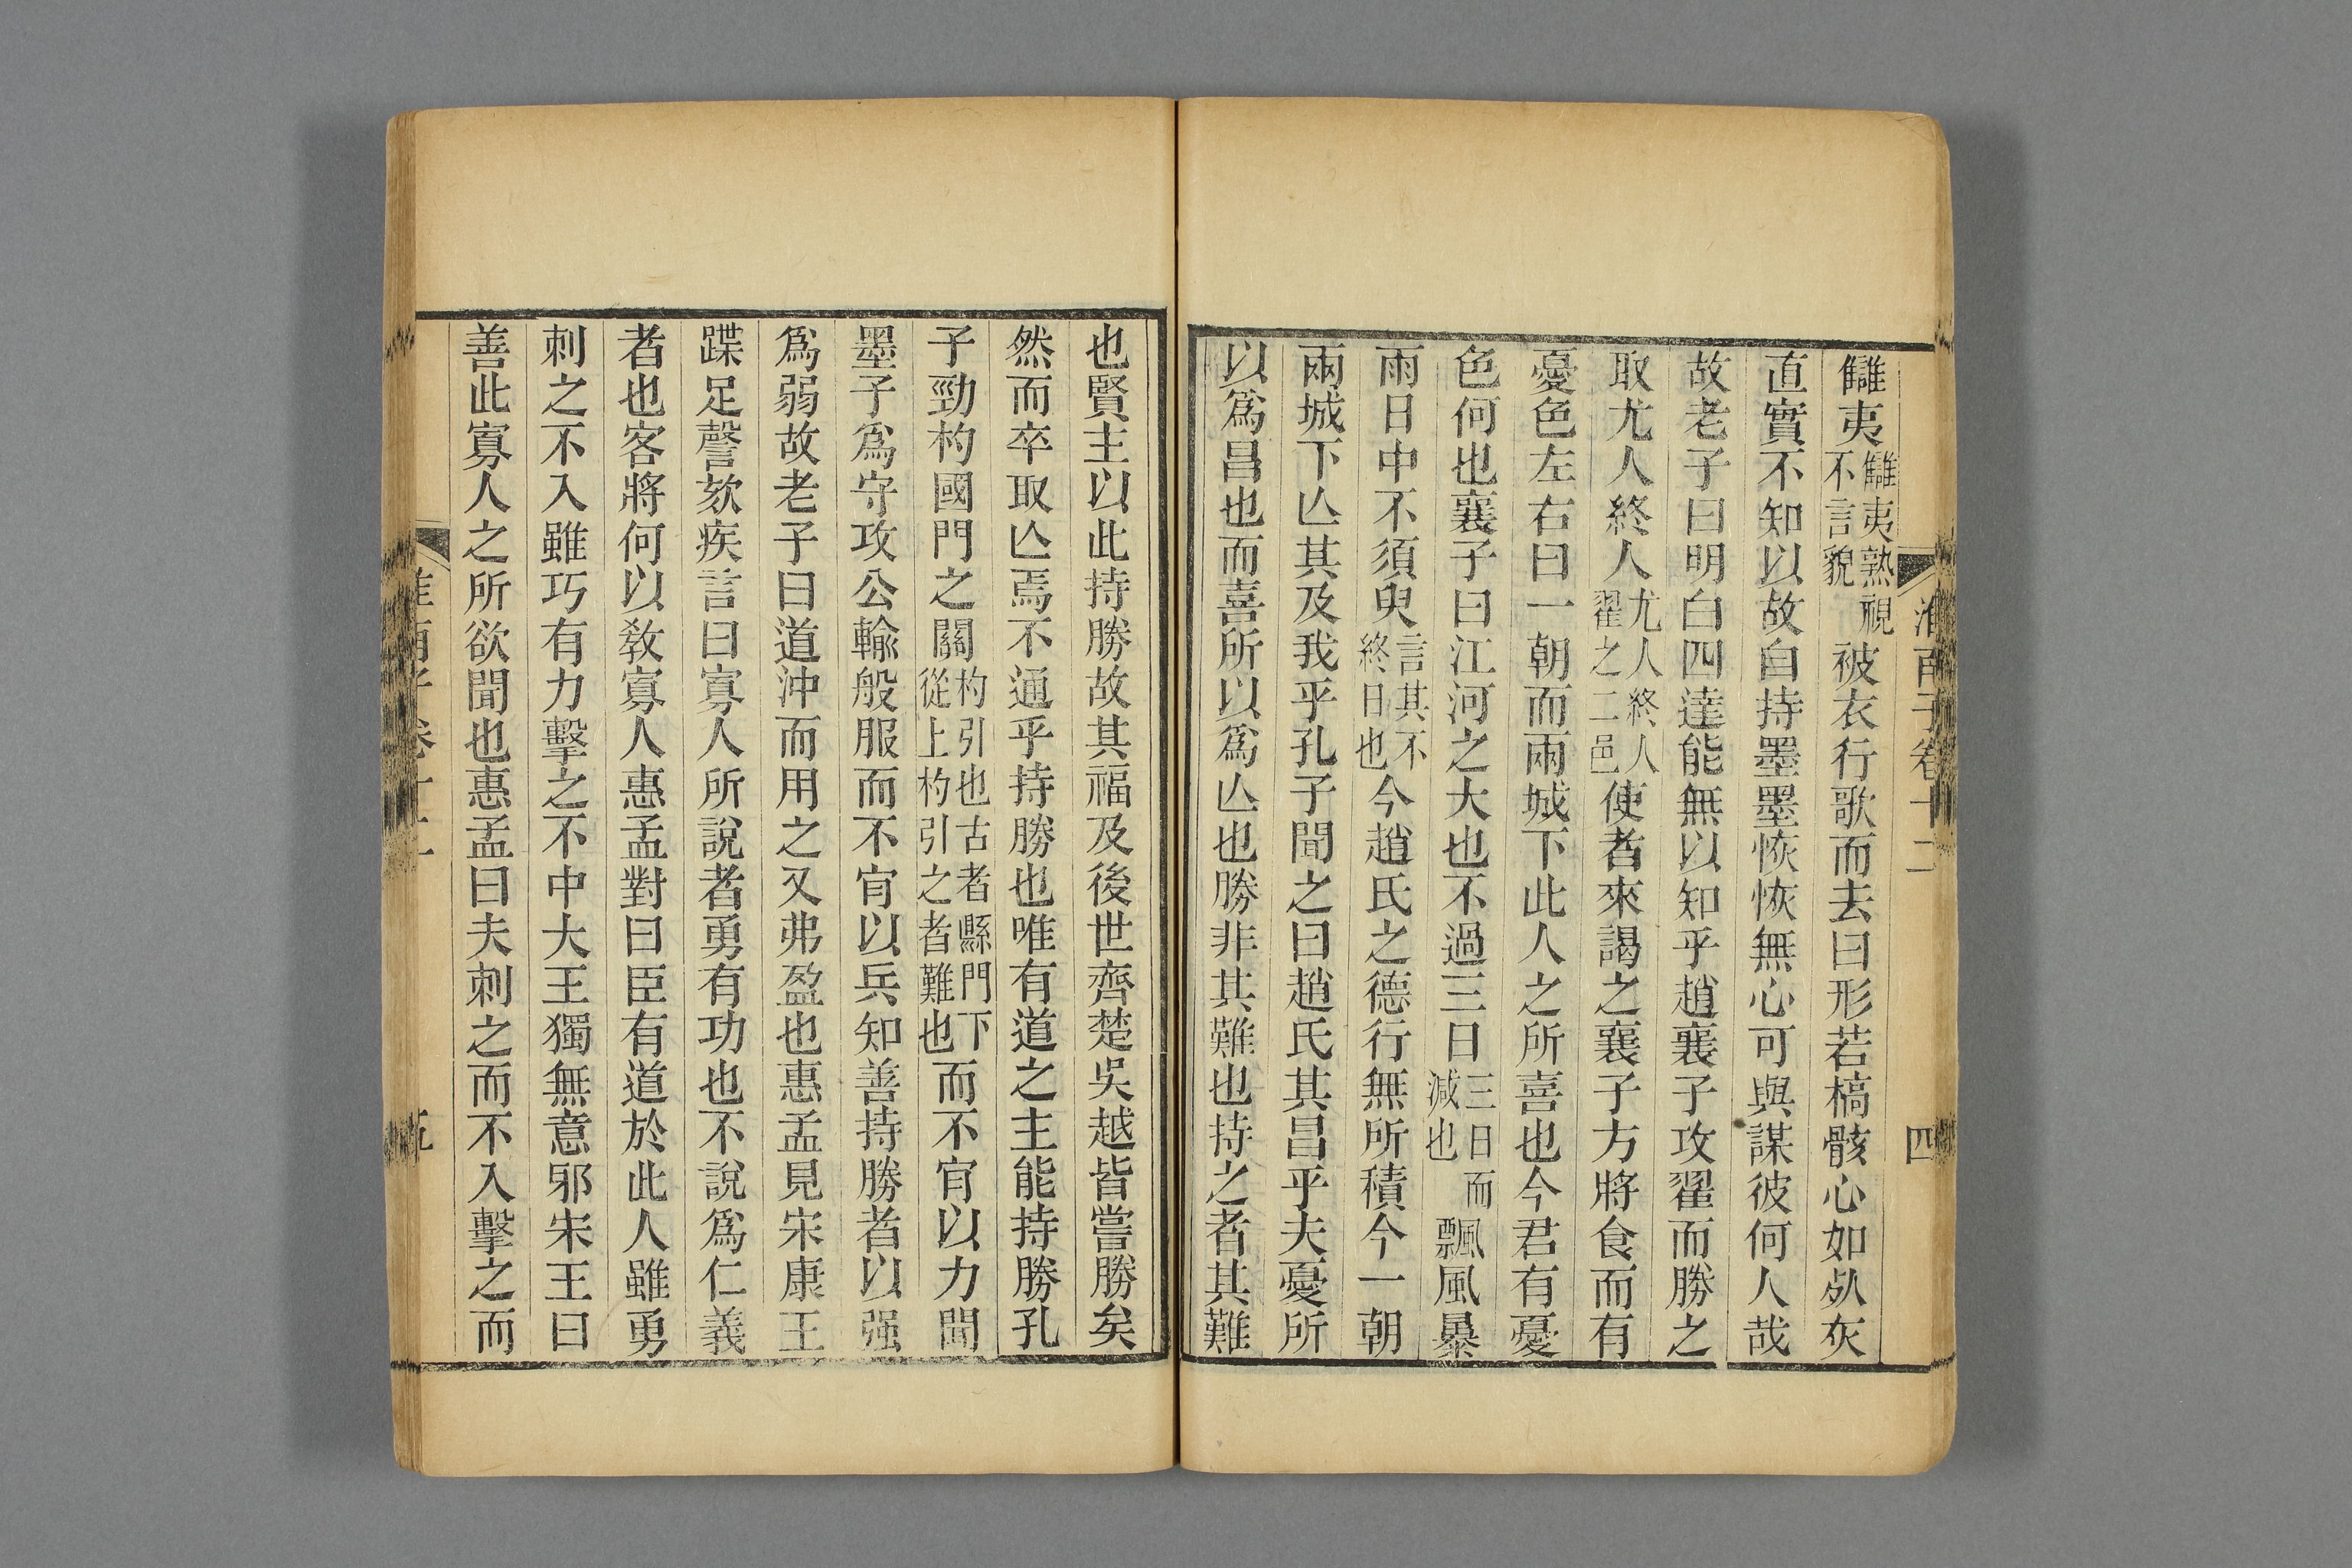 淮南子卷十二 四
讎夷讎夷熟視不言貌被衣行歌而去曰形若槁骸心如𣦸灰
直實不知以故自持墨墨恢恢無心可與謀彼何人哉
故老子曰明白四達能無以知乎趙襄子攻翟而勝之
取尤人終人尤人終人翟之二邑使者來謁之襄子方將食而有
憂色左右曰一朝而兩城下此人之所喜也今君有憂
色何也襄子曰江河之大也不過三日三日而減也飄風暴
雨日中不須臾言其不終日也今趙氏之德行無所積今一朝
兩城下亾其及我乎孔子聞之曰趙氏其昌乎夫憂所
以爲昌也而喜所以爲亾也勝非其難也持之者其難
也賢主以此持勝故其福及後世齊楚吳越皆嘗勝矣
然而卒取亾焉不通乎持勝也唯有道之主能持勝孔
子勁杓國門之關杓引也古者縣門下從上杓引之者難也而不肎以力聞
墨子爲守攻公輸般服而不肎以兵知善持勝者以强
爲弱故老子曰道沖而用之又弗盈也惠孟見宋康王
蹀足謦欬疾言曰寡人所說者勇有功也不說爲仁義
者也客將何以敎寡人惠孟對曰臣有道於此人雖勇
刺之不入雖巧有力擊之不中大王獨無意邪宋王曰
善此寡人之所欲聞也惠孟曰夫刺之而不入擊之而
淮南子卷十二 五